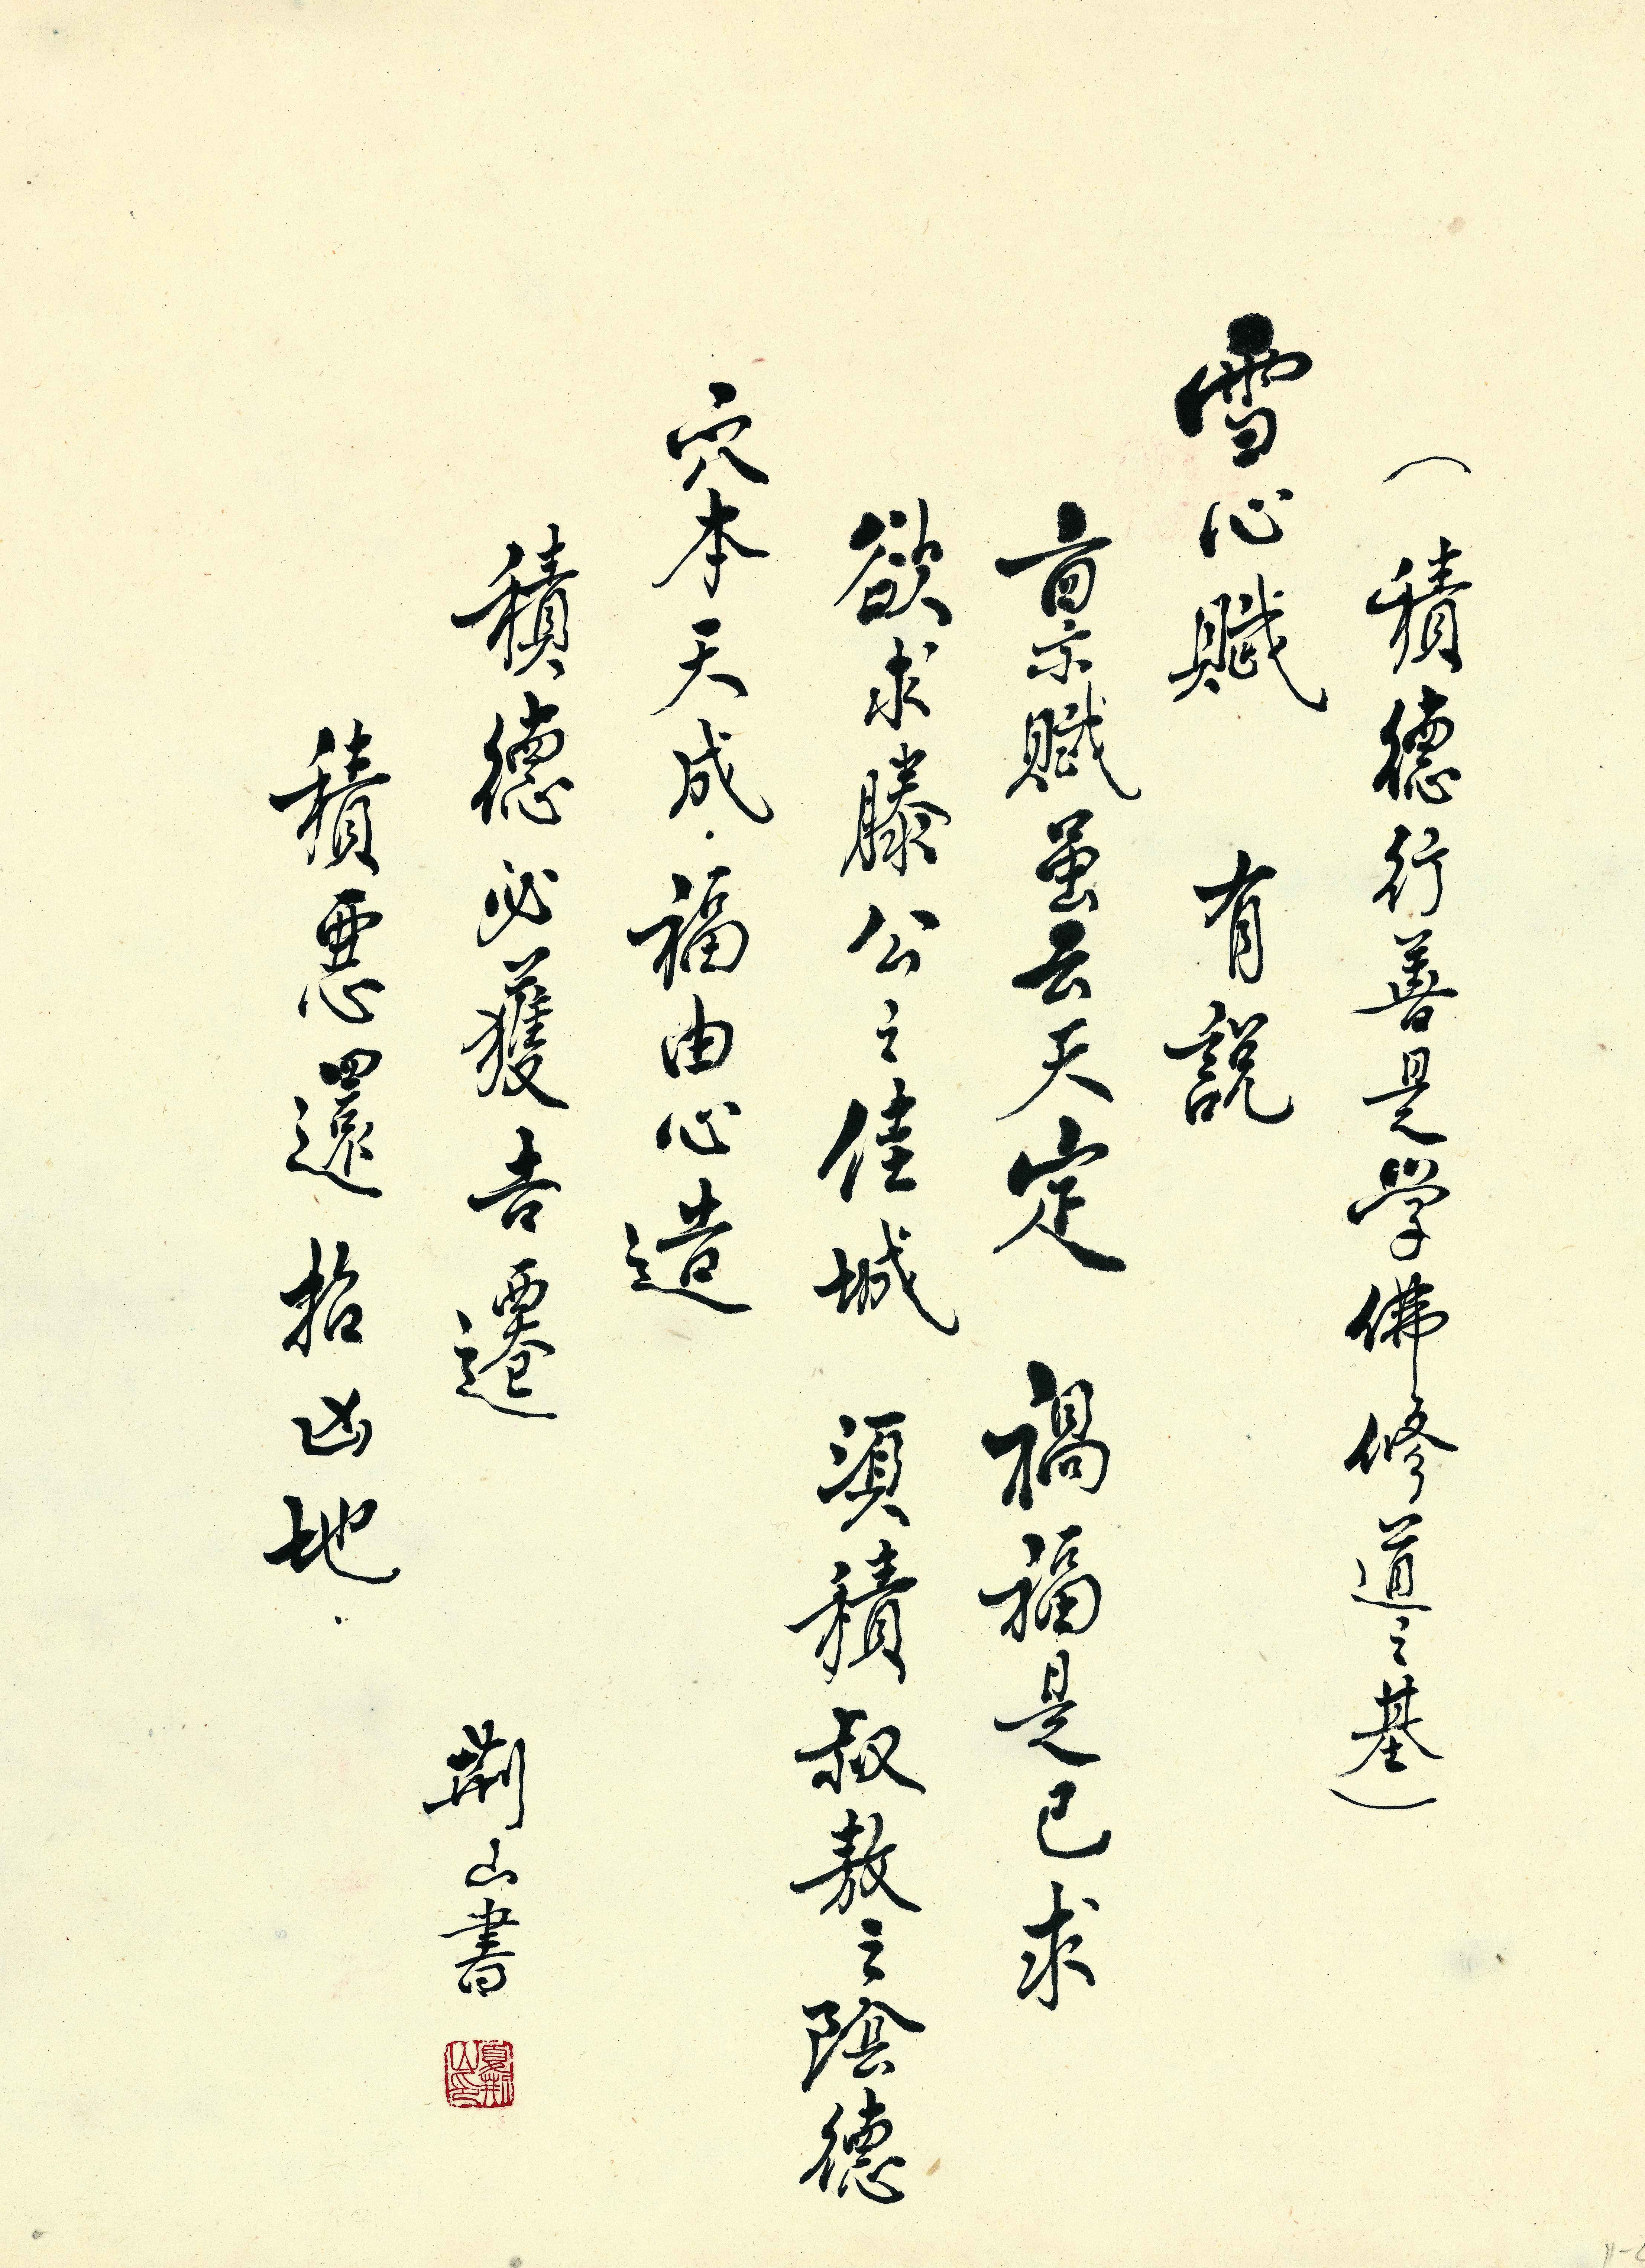 （積德行善是學佛修道之基）
雪心賦 有說
禀賦虽云天定 禍福是己求
欲求滕公之佳城 須積叔敖之陰德
穴本天成．福由心造
積德必獲吉遷
積惡還招凶地．
荆山書
夏荆山印